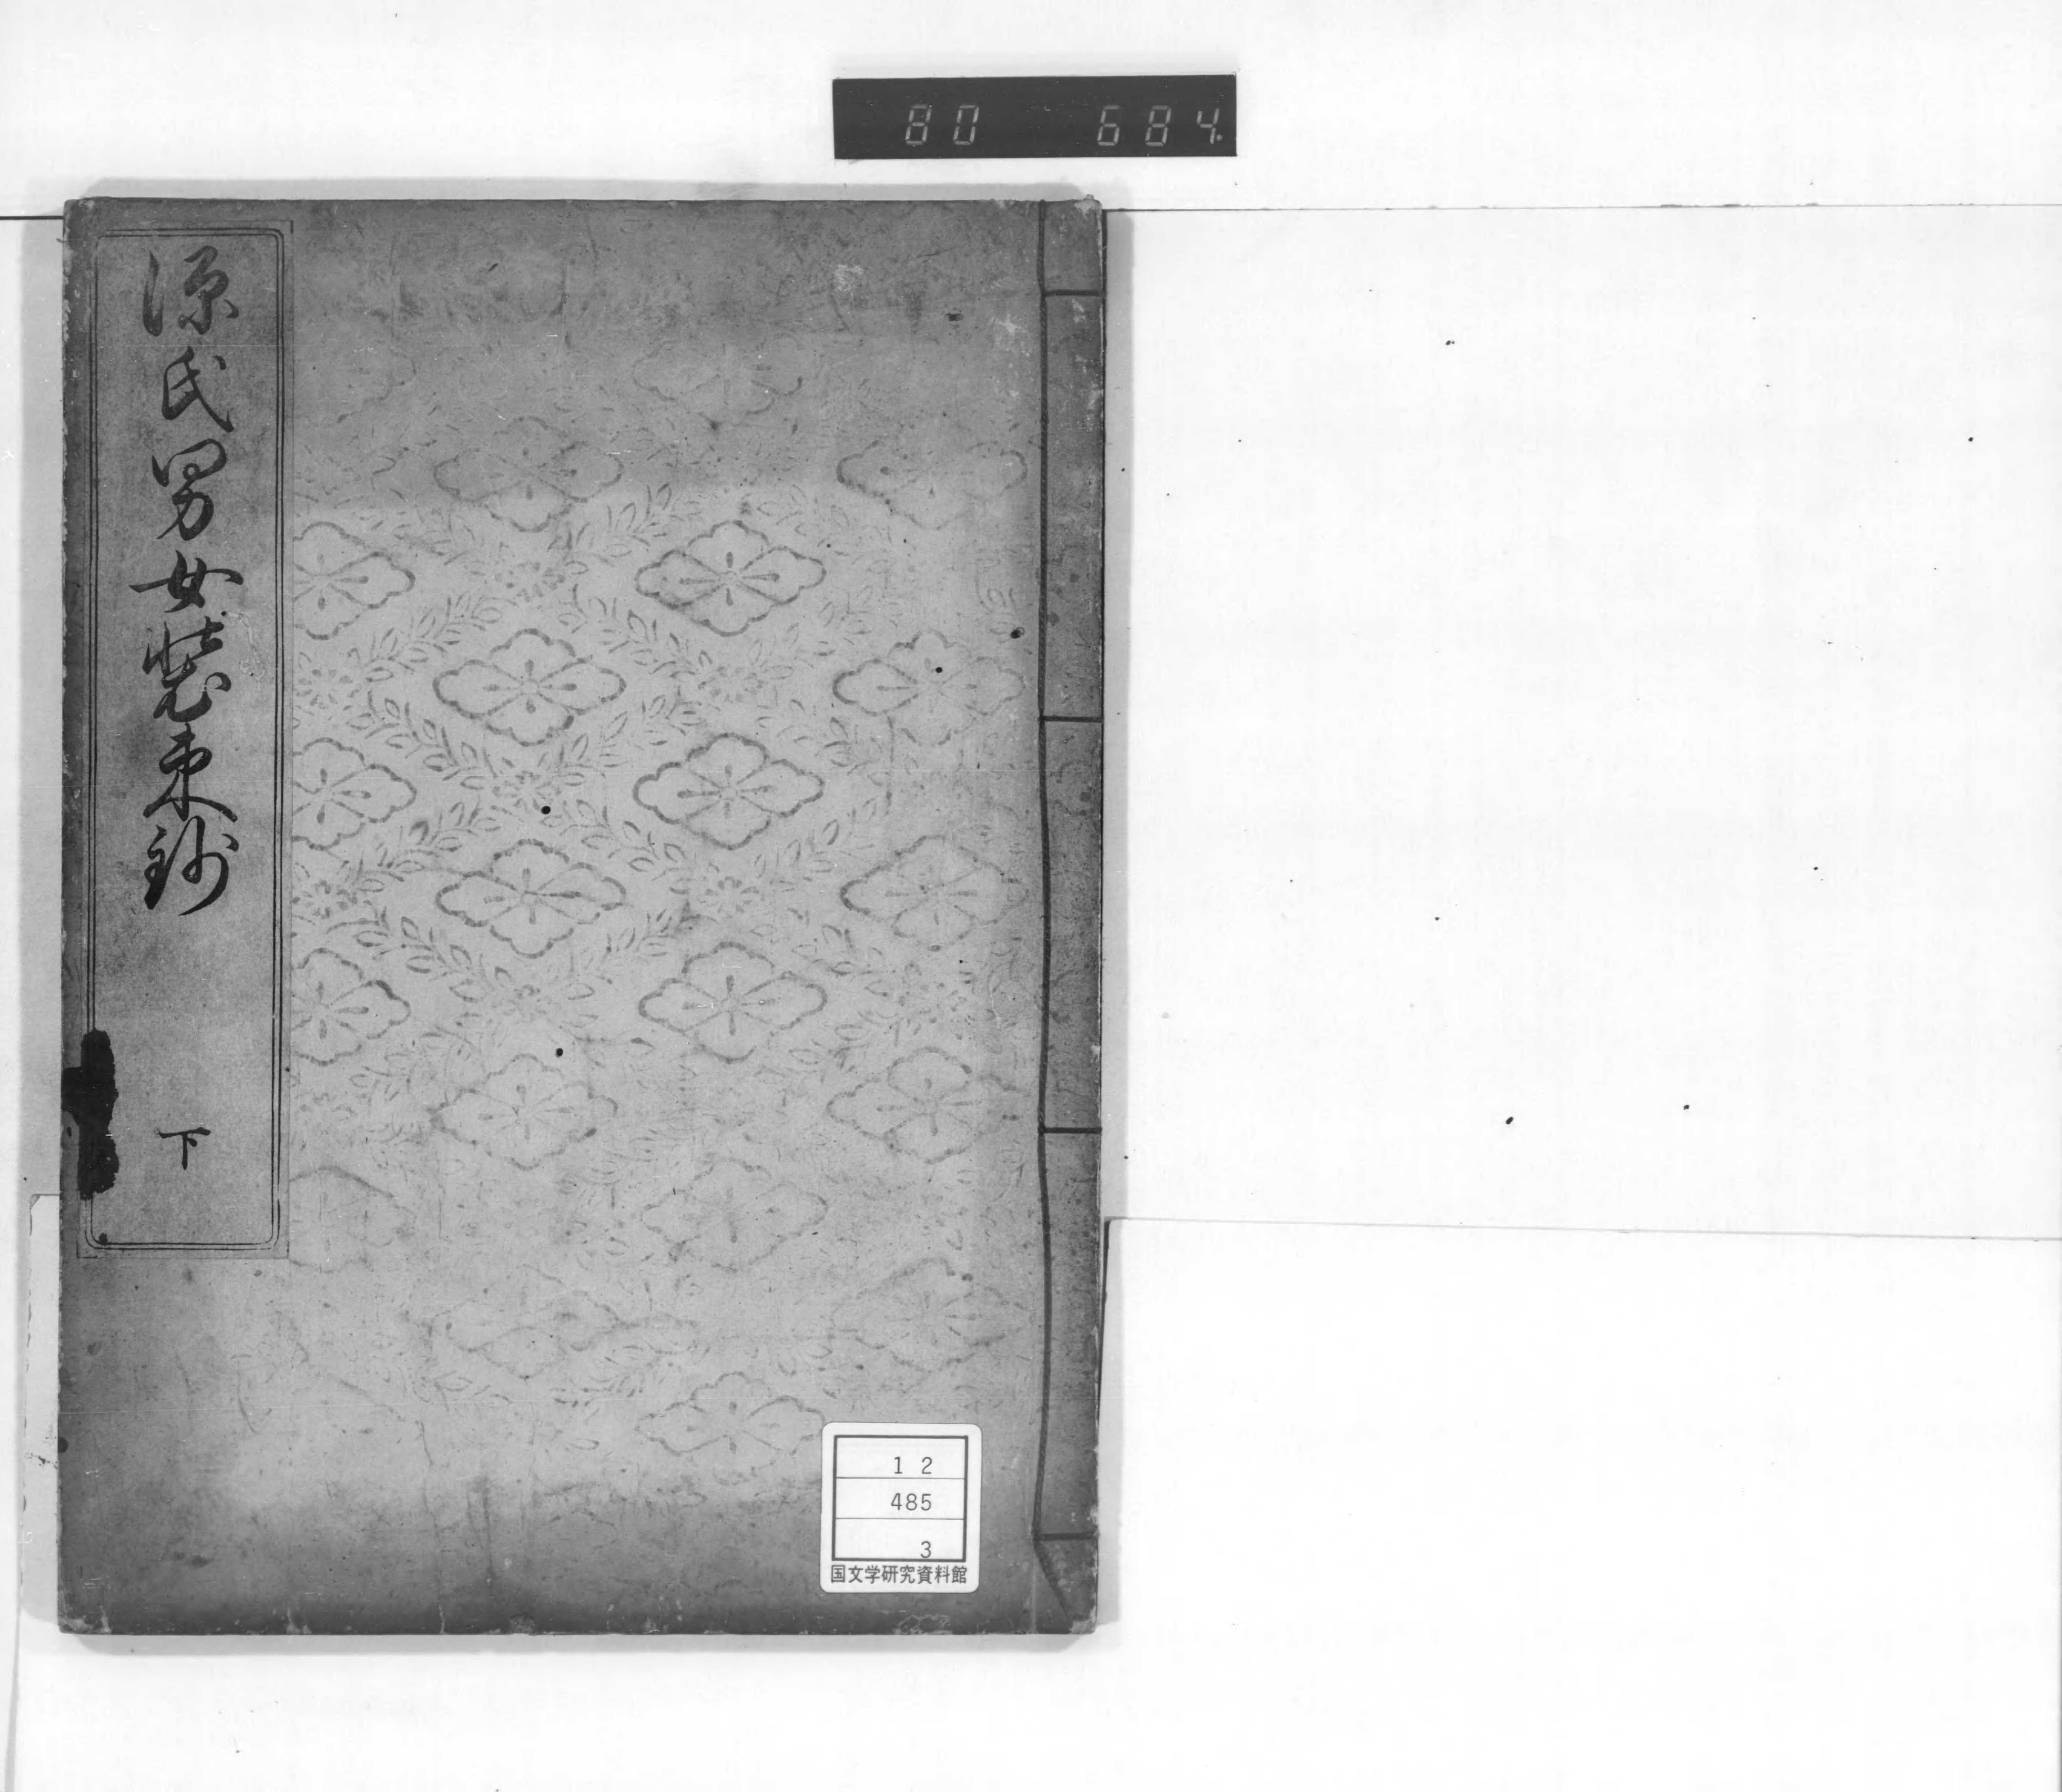 80 684
源氏男女装束鈔
下
12
485
3
国文学研究資料館